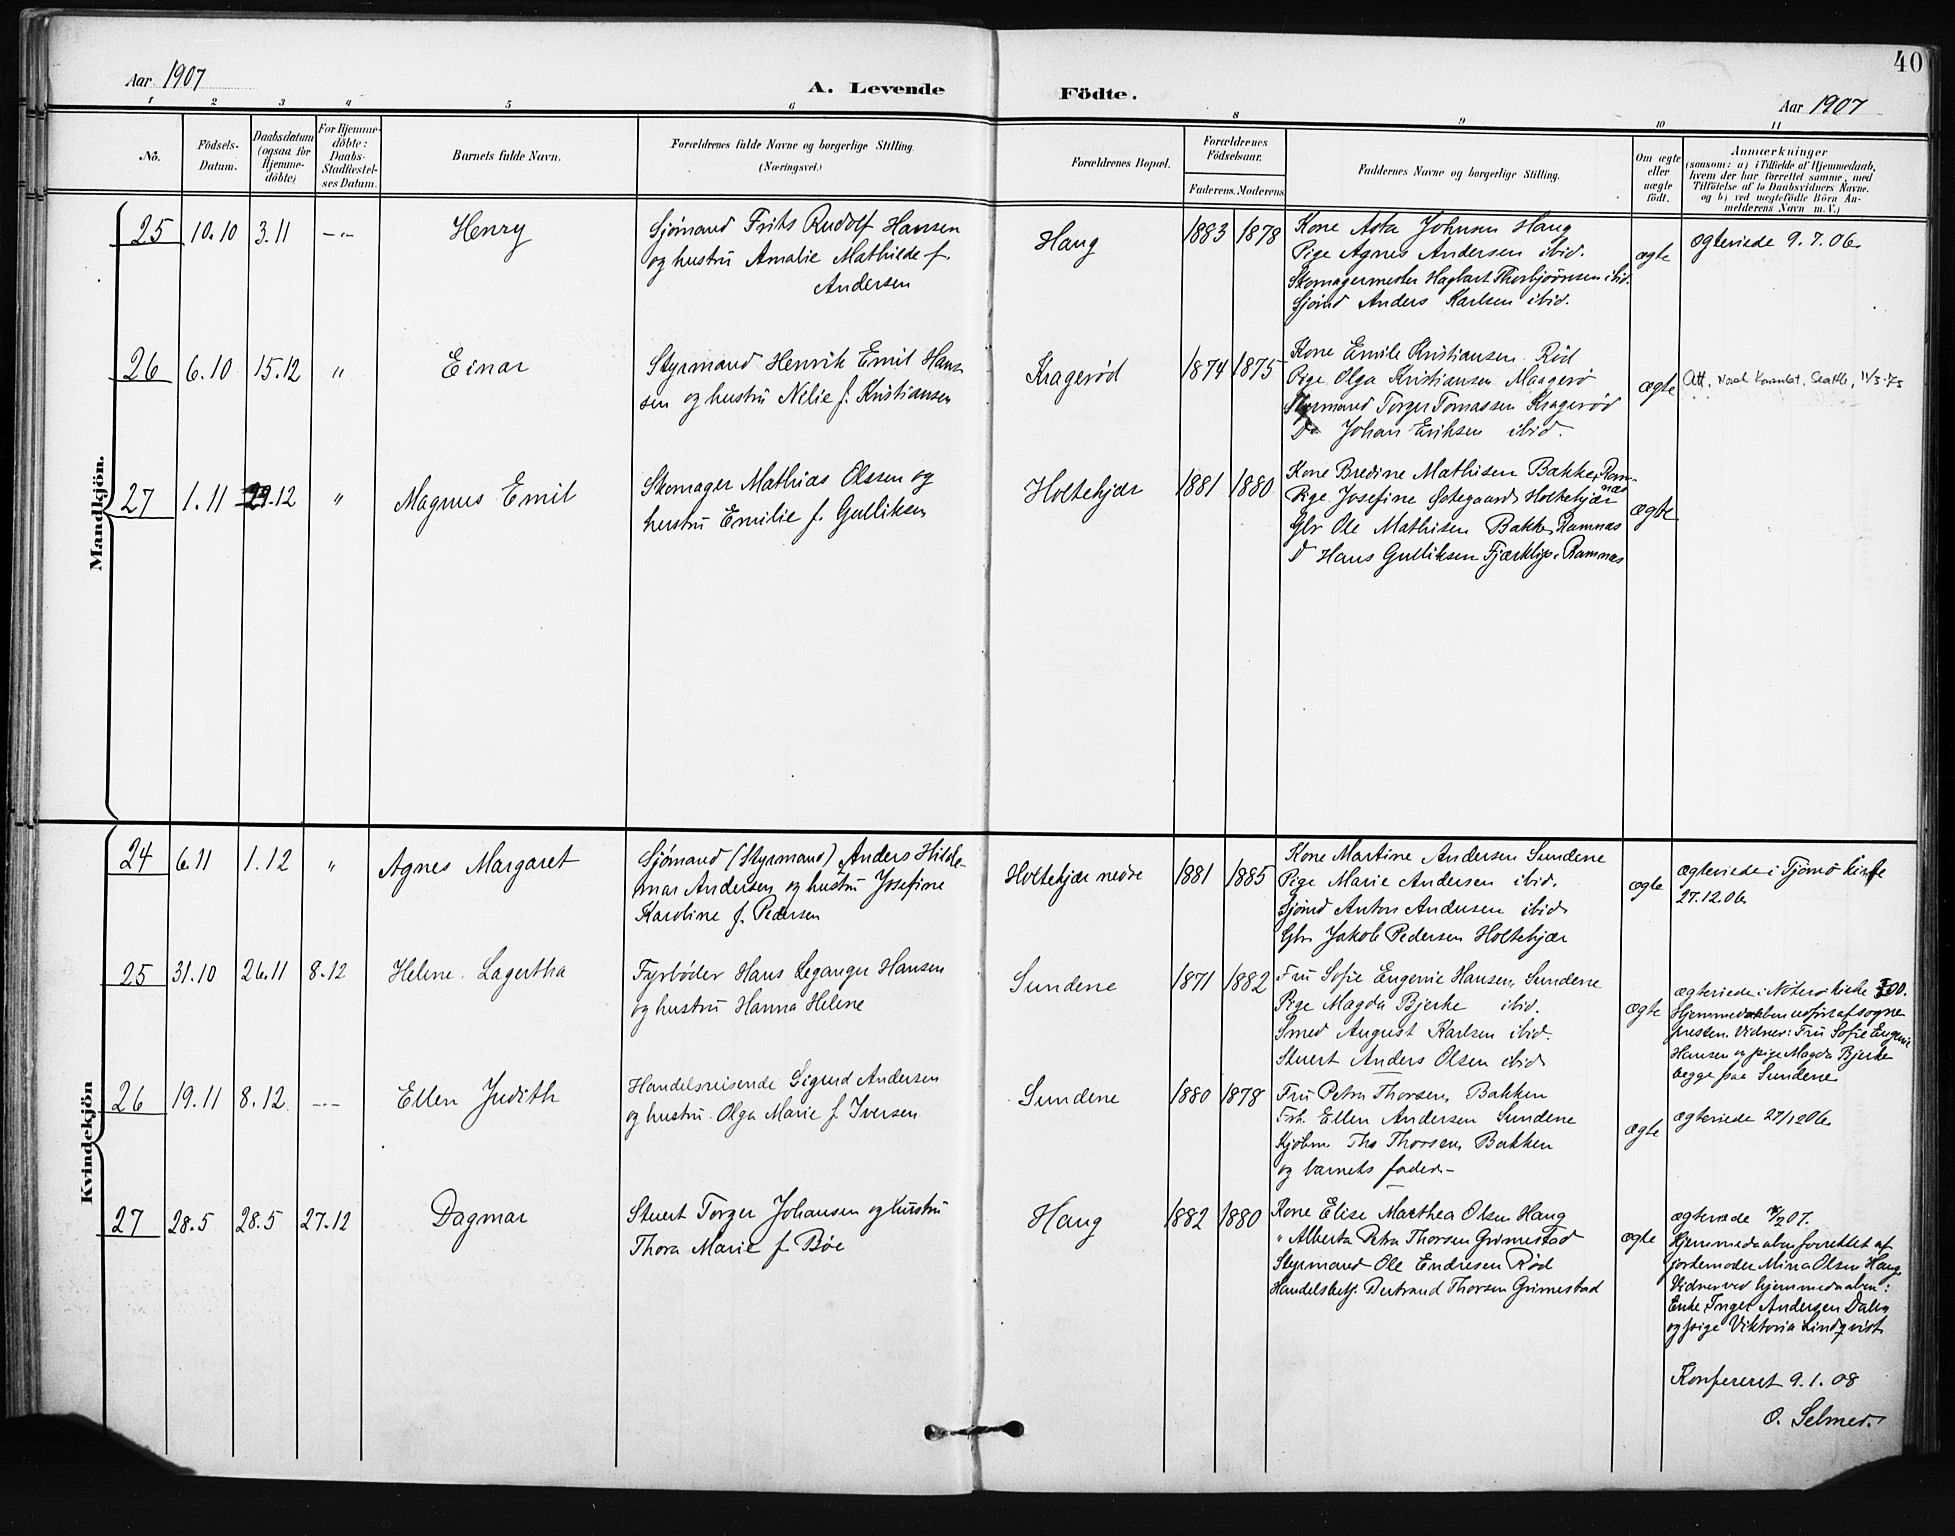 Aar 1907
A. Levende Födte.
Aar 1907
40
1 2 3 4 5 6 8 9 10 11
No.
Födsels-
Datum.
Daabsdatum
(ogsaa for
Hjemme-
döbte)
For Hjemme-
döbte:
Daabs-
Stadfæstel-
ses Datum.
Barnets fulde Navn.
Forældrenes fulde Navne og borgerlige Stilling.
(Næringsvei.)
Forældrenes Bopæl.
Forældrenes
Födselsaar.
Faderens. Moderens
Faddernes Navne og borgerlige Stilling.
Om ægte
eller
uægte
født.
Anmærkninger
(saasom: a) i Tilfælde af Hjemmedaab,
hvem der har forrettet samme, med
Tilföielse af to Daabsvidners Navne.
og b) ved uægtefödte Börn An-
melderens Navn m. V.)
Mandkjön.
25 10.10 3.11 -"-
Henry
Sjømand Frits Rudolf Hansen
og hustru Amalie Mathilde f.
Andersen
Haug
1883 1878
Kone Asta Johnsen Haug
Pige Agnes Andersen ibid.
Skomagermester Hagbart Thorbjørnsen ibid.
Sjømd Anders Karlsen ibid.
ægte
ægteviede 9.7.06.
26 6.10 15.12 "
Einar
Styrmand Henrik Emil Han-
sen og hustru Nilie f. Kristiansen
Kragerød
1874 1875
Kone Emile Kristiansen Rød
Pige Olga Kristiansen Maagerø
Styrmand Torger Tomassen Kragerød
Do Johan Eriksen ibid.
ægte
Att. Norsk Konsulat, Seattle, 11/3-75
27 1.11 29.12 "
Magnus Emil
Skomager Mathias Olssen og
hustru Emilie f. Gulliksen
Holtekjær
1881 1880
Kone Bredine Mathisen Bakke, Ram-
næs
Pige Josefine Østegaard Holtekjær
Gbr Ole Mathisen Bakke, Ramnæs
D Hans Gulliksen Ramnæs
ægte
Kvindekjön
24 6.11 1.12 "
Agnes Margaret
Sjømand (Styrmand) Anders Hilde-
mar Andersen og hustru Josefine
Karoline f. Pedersen
Holtekjær nedre
1881 1885
Kone Martine Andersen Sundene
Pige Marie Andersen ibid.
Sjømd Anton Andersen ibid
Gbr Jakob Pedersen Holtekjær
ægte
ægteviede i Tjømø kirke
27.12.06.
25 31.10 26.11 8.12
Helene Lagertha
Fyrbøder Hans Leganger Hansen
og hustru Hanna Helene
Sundene
1871 1882
Fru Sofie Eugenie Hansen, Sundene
Pige Magda Bjerke ibid.
Smed August Karlsen ibid.
Stuert Anders Olsen ibid
ægte
ægteviede i Nøterø kirke 00.
Hjemmedaaben udført af sogne
presten. Vidner: Fru Sofie Eugenie
Hansen og pige Magda Bjerke
begge paa Sundene
26 19.11 8.12 -"-
Ellen Judith
Handelsreisende Sigurd Andersen
og hustru Olga Marie f. Iversen
Sundene
1880 1878
Fru Petra Thorsen, Bakken
Frk. Ellen Andersen Sundene
Kjøbm Ths Thorsen, Bakken
og barnets fader.-
ægte
ægteviede 27/12 06.
27 28.5 28.5 27.12
Dagmar
Stuert Torger Johansen og hustru
Thora Marie f. Bøe
Haug
1882 1880
Kone Elise Marthea Olsen Haug
" Alberta Petra Thorsen Grimestad
Styrmand Ole Endresen Rød
Handelsbetj. Bertrand Thorsen Grimestad
ægte
ægteviede 07.
Hjemmedaaben forrettet af
jordemoder Mina Olsen Haug.
Vidner ved hjemmedaaben:
Enke Inger Andersen
og pige Viktoria Lindqvist
Konfereret 9.1.08
O. Selmer.